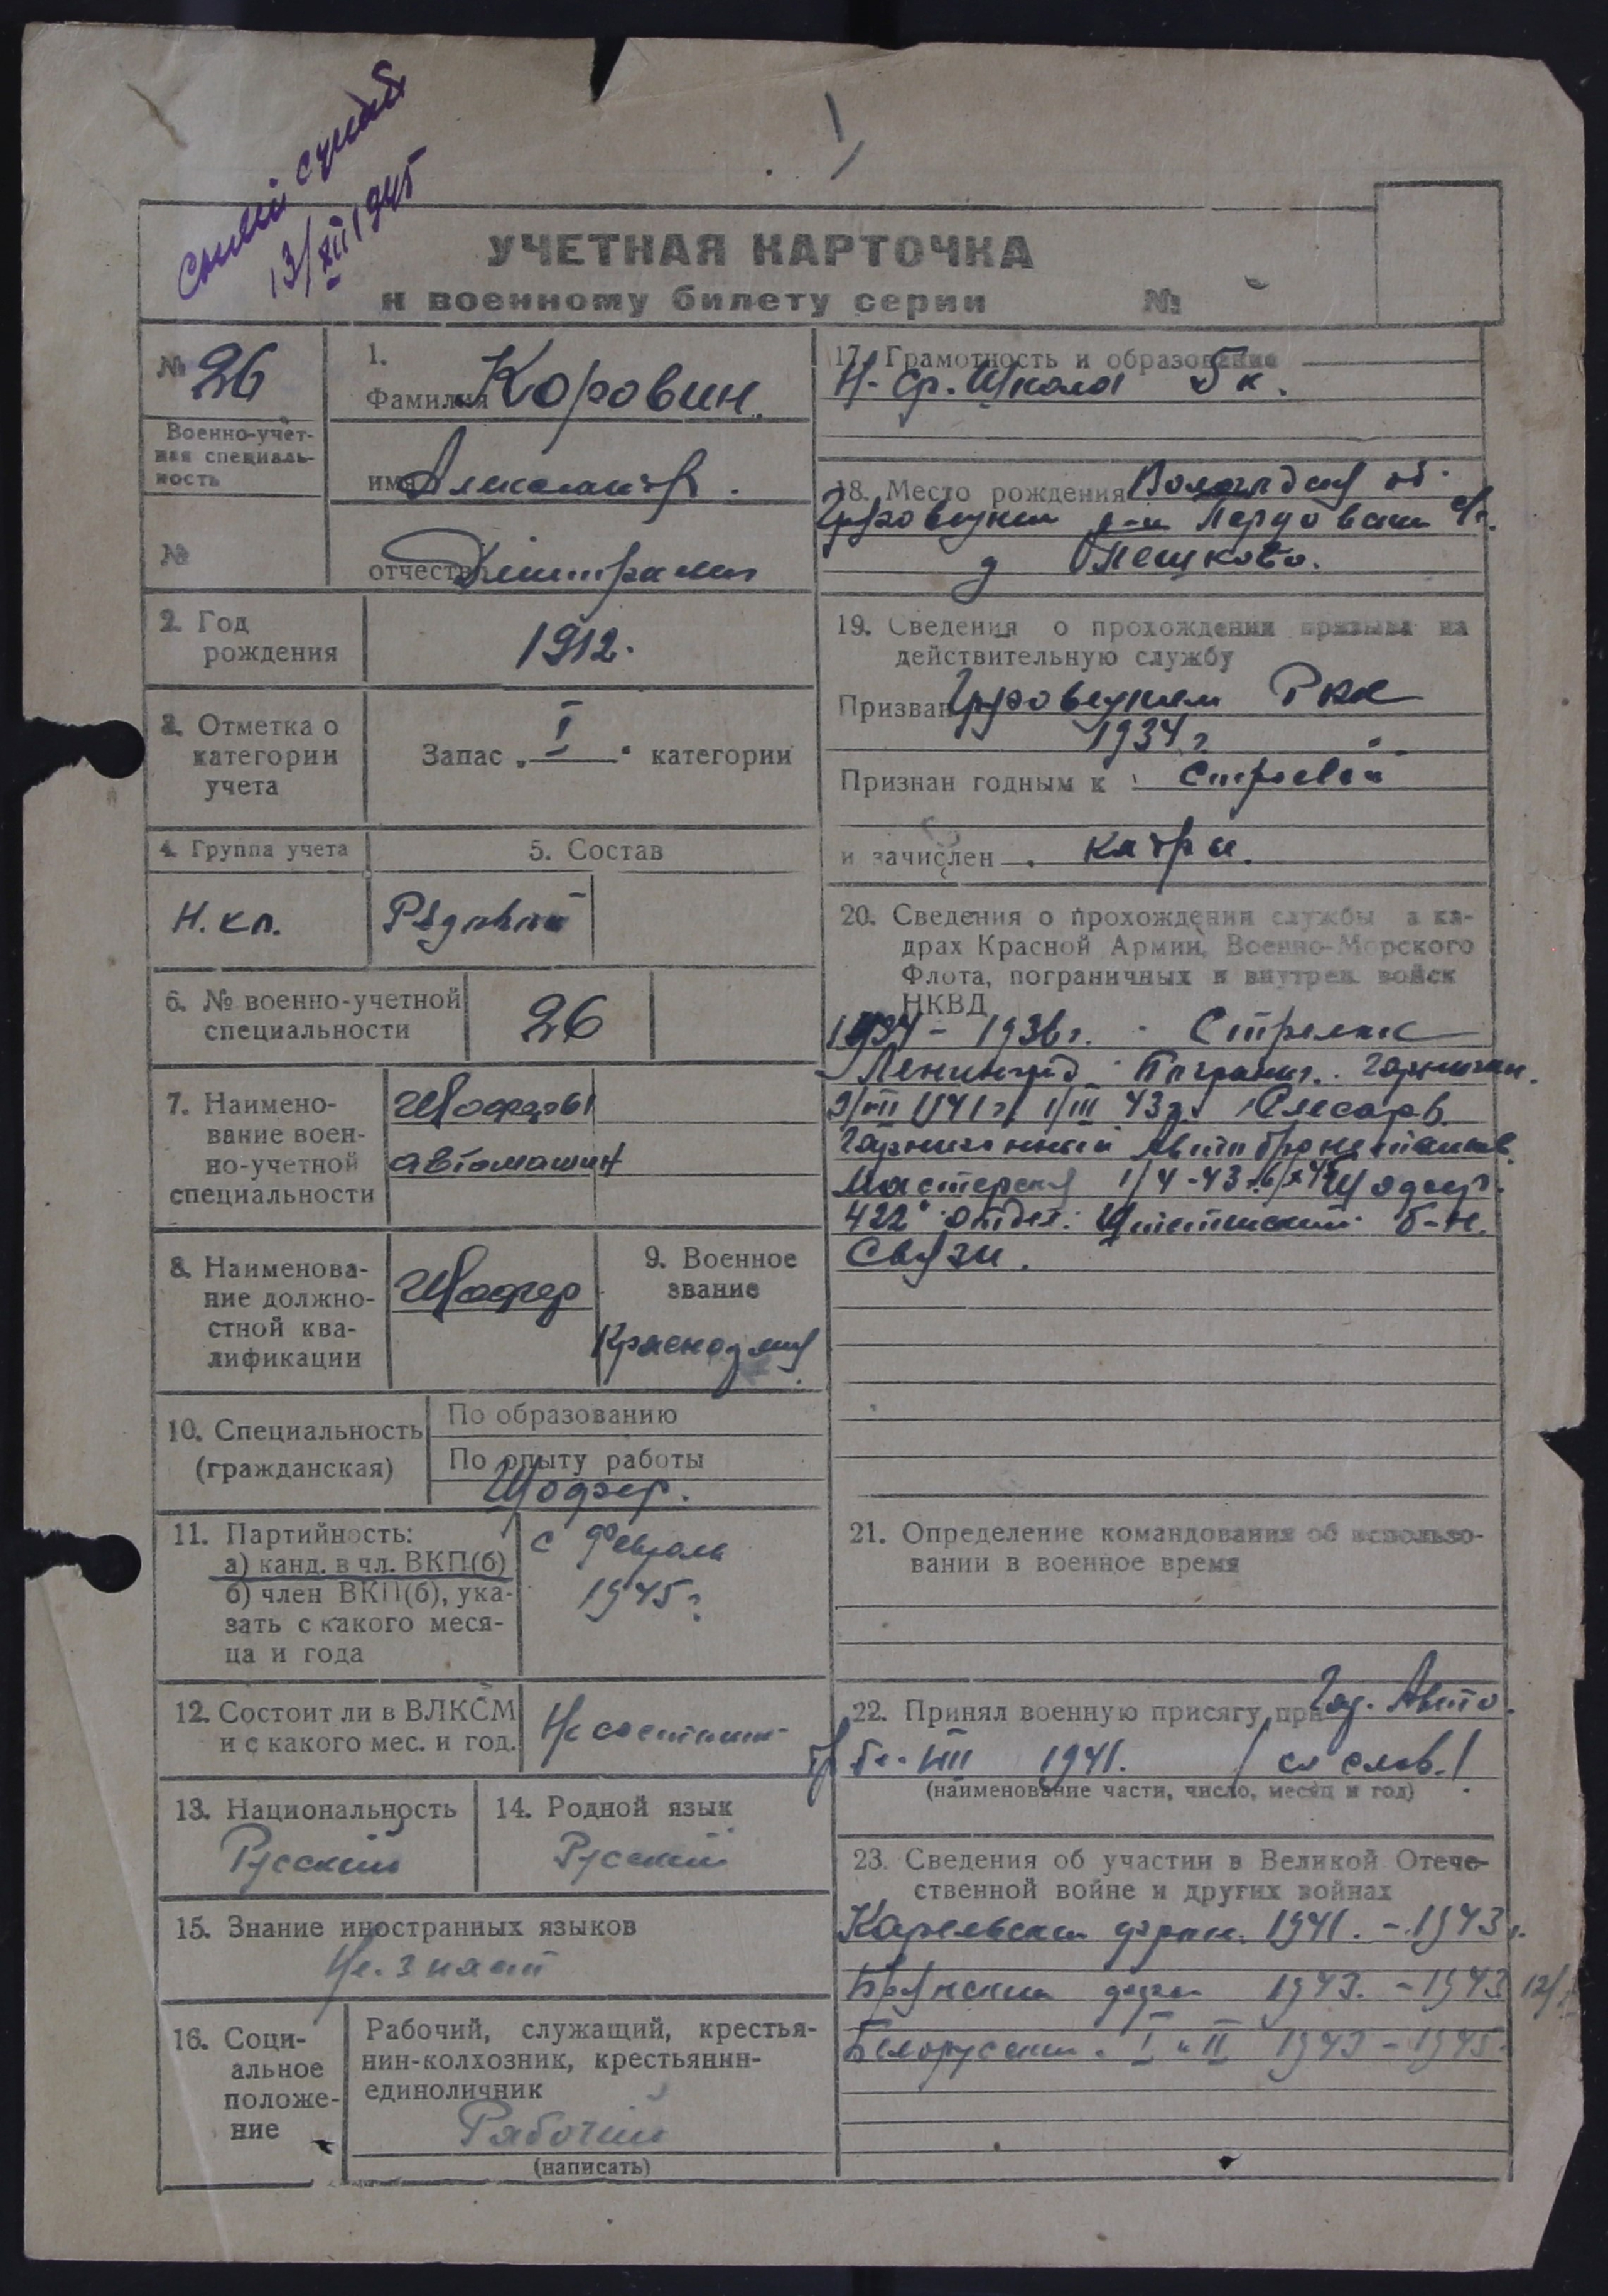 13/XII 1945
УЧЕТНАЯ КАРТОЧКА
к военному билету серии №
№ 26
Военно-учет-
ная специаль-
ность
№
1.
Фамилия Коровин
имя Александр.
отчество
2. Год
рождения
1912.
3. Отметка о
категории
учета
Запас „I“ категории
4. Группа учета
5. Состав
Н.кп.
Рядовой
6. № военно-учетной
специальности
26
7. Наимено-
вание воен-
но-учетной
специальности
Шоферы
автомашин
8. Наименова-
ние должно-
стной ква-
лификации
Шофер
9. Военное
звание
Красноармец
10. Специальность
(гражданская)
По образованию
По опыту работы
Шофер.
11. Партийность:
а) канд. в чл. ВКП(б)
б) член ВКП(б), ука-
зать с какого меся-
ца и года
с Февраля
1945 г.
12. Состоит ли в ВЛКСМ
и с какого мес. и год.
Не состоит
13. Национальность
Русский
14. Родной язык
Русский
15. Знание иностранных языков
Не знает
16. Соци-
альное
положе-
ние
Рабочий, служащий, крестья-
нин-колхозник, крестьянин-
единоличник
Рабочий
(написать)
17. Грамотность и образование
Н-ср. Школа 5 к.
18. Место рождения Вологодская об.
Грязовецкий р-н
д Опешково.
19. Сведения о прохождении призыва на
действительную службу
Призван Грязовецким РВК
1934 г
Признан годным к строевой
и зачислен кадры.
20. Сведения о прохождении службы в ка-
драх Красной Армии, Военно-Морского
Флота, пограничных и внутрен. войск
НКВД
1934 - 1936 г. Стрелок
Ленинград Погранич. Гарнизон.
9/VII 1941 г. 1/III 43 г. Слесарь
Гарнизонный Автобронетанков.
Мастерская 1/4-43 г. Шофер
422 отдел. Штетинский б-н.
Связи.
21. Определение командования об использо-
вании в военное время
22. Принял военную присягу при Авто
VIII 1941. со слов.
(наименование части, число, месяц и год)
23. Сведения об участии в Великой Отече-
ственной войне и других войнах
Карельский фрон. 1941. - 1943 г.
Брянский фрон 1943. - 1943
Белорусский. I и II 1943 - 1945.